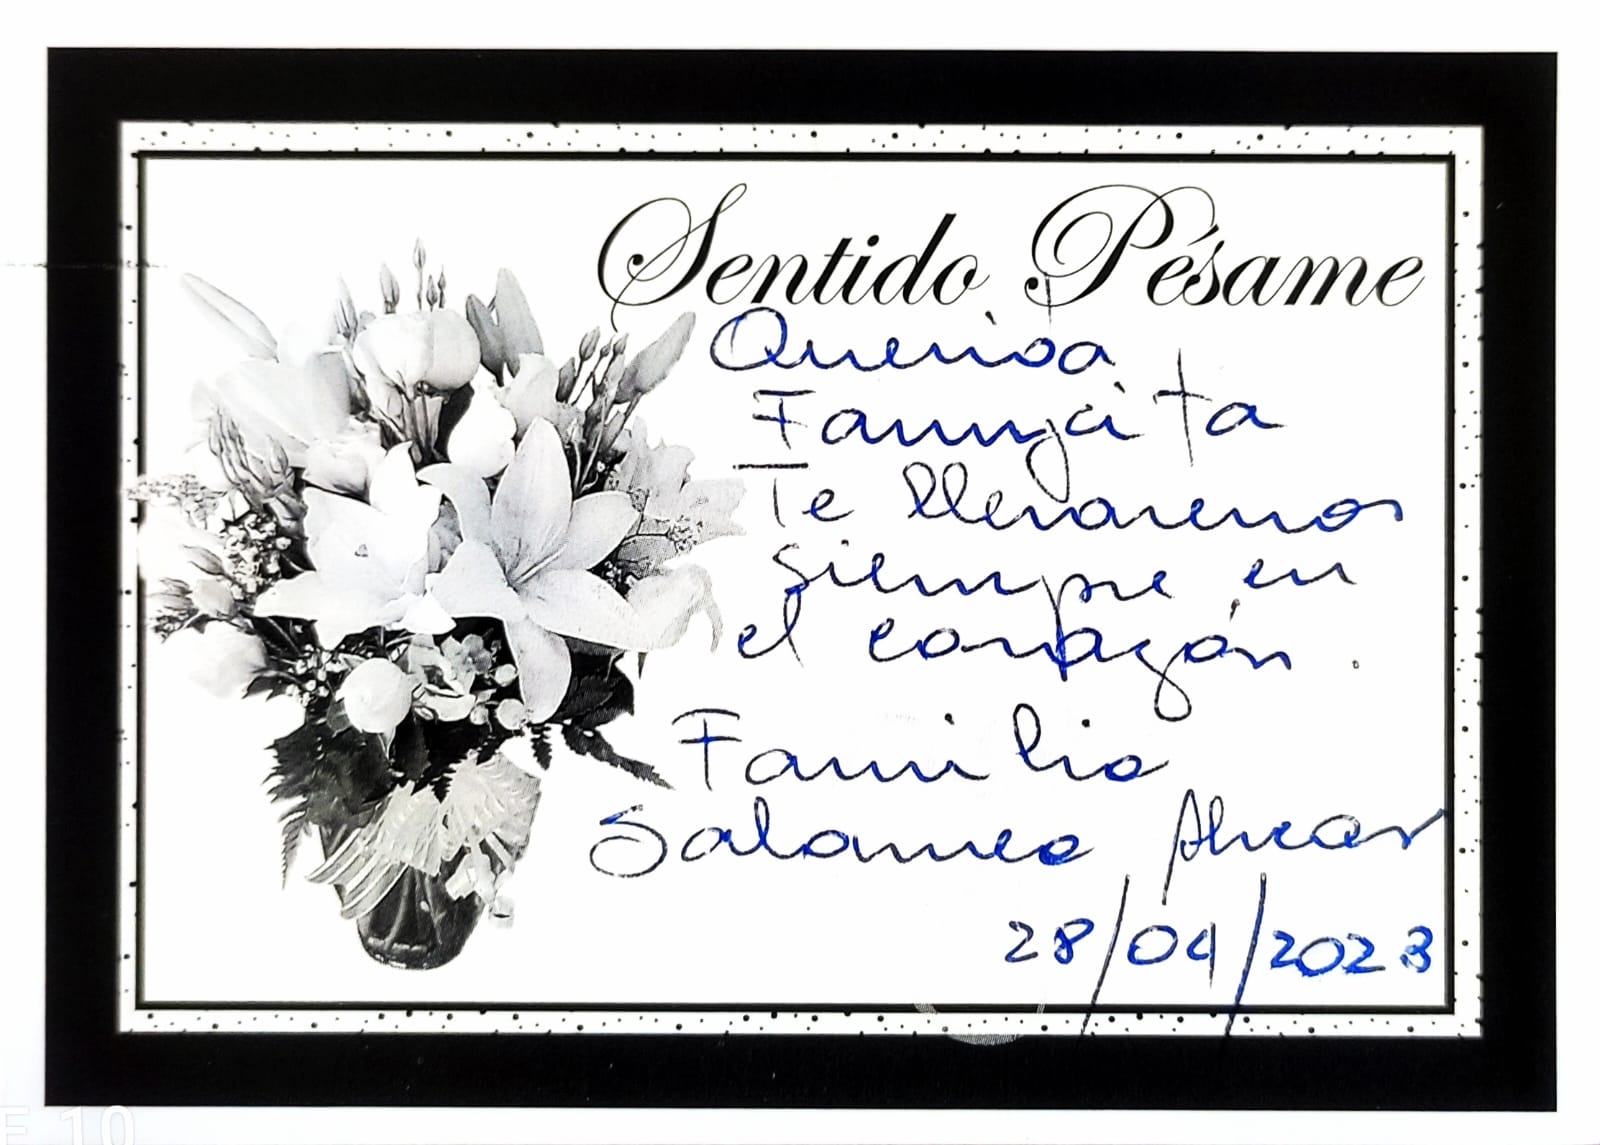 Sentido Pésame
Querida
Fannycita
Te llevaremos
siempre en
el corazón.
Familia
Salomeo
28/04/2023
E 10